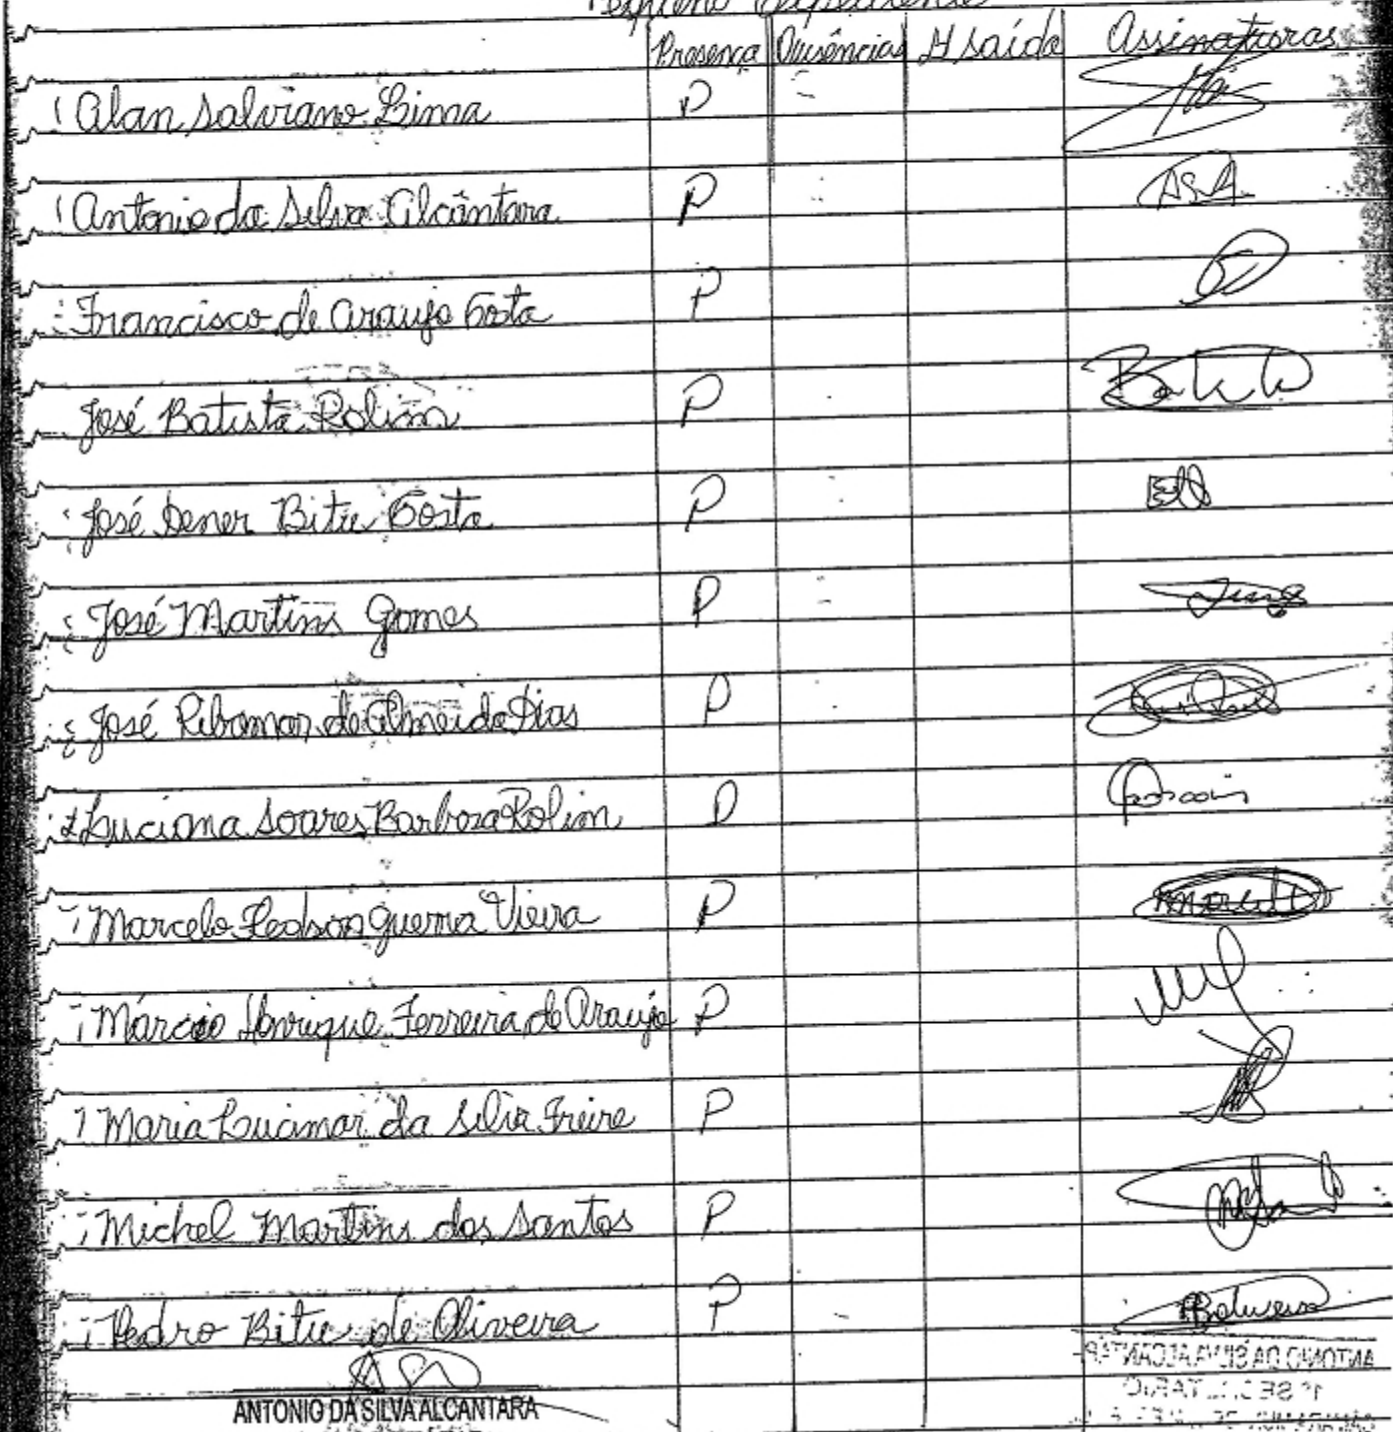 Pequeno Expediente
Presença Ausências H saída Assinaturas
Alan Salviano Lima P
Antonio da Silva Alcântara P ASA
Francisco de Araujo Costa P
José Batista Rolim P
José Dener Bitu Costa P
José Martins Gomes P
José Ribamar de Almeida Dias P
Luciana Soares Barboza Rolim P
Marcelo Ledson Guerra Vieira P
Márcio Henrique Ferreira de Araujo P
Maria Lucimar da Silva Freire P
Michel Martins dos Santos P
Pedro Bitu de Oliveira P
ANTONIO DA SILVA ALCANTARA